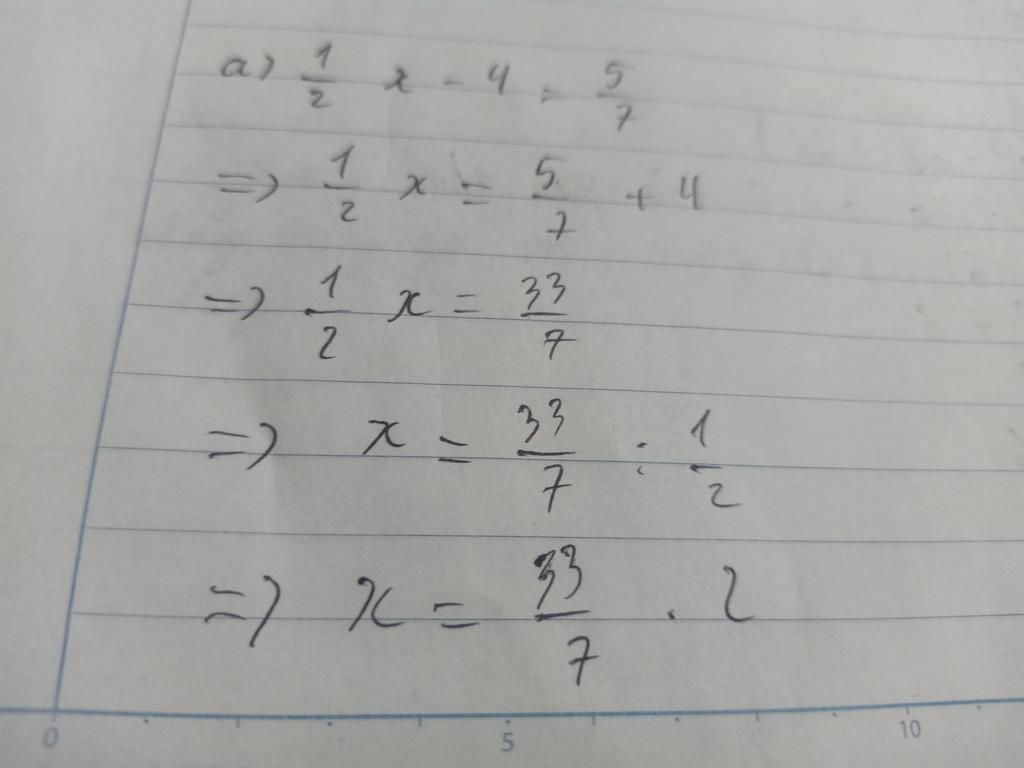 a) 1/2 x - 4 = 5/7
=> 1/2 x = 5/7 + 4
=> 1/2 x = 33/7
=> x = 33/7 : 1/2
=> x = 33/7 . 2
0 5 10